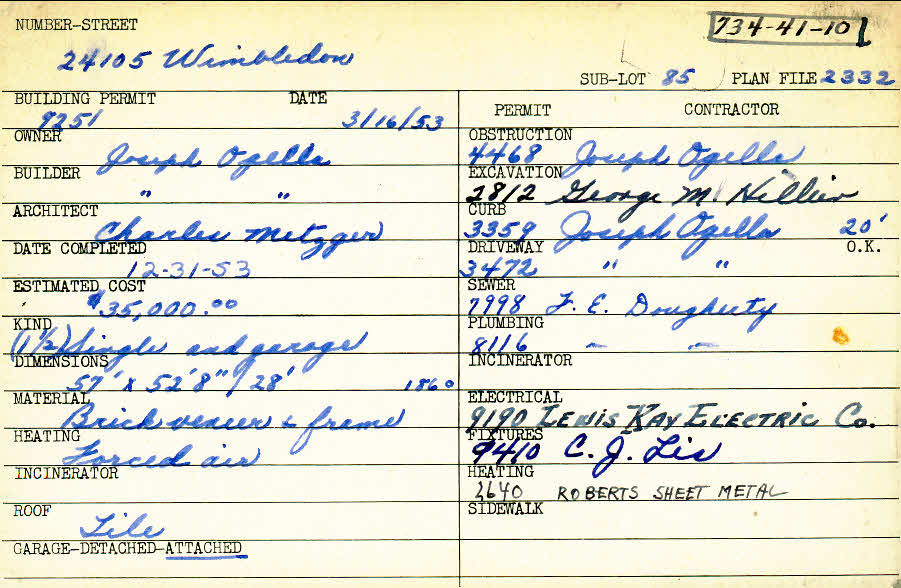 NUMBER-STREET
734-41-10
24105 Wimbledon
SUB-LOT 85 PLAN FILE 2332
BUILDING PERMIT DATE
9251 3/16/53
OWNER
Joseph Ogella
BUILDER
" "
ARCHITECT
Charles Metzger
DATE COMPLETED
12-31-53
ESTIMATED COST
$35,000.00
KIND
(1 1/2) Single and garage
DIMENSIONS
57' x 52'8" / 28' 1860
MATERIAL
Brick veneer & frame
HEATING
Forced air
INCINERATOR
ROOF
Tile
GARAGE-DETACHED-ATTACHED
PERMIT CONTRACTOR
OBSTRUCTION
4468 Joseph Ogella
EXCAVATION
2812 George M. Hillier
CURB
3359 Joseph Ogella 20'
DRIVEWAY O.K.
3472 " "
SEWER
7998 F. E. Dougherty
PLUMBING
8116 – –
INCINERATOR
ELECTRICAL
9190 LEWIS KAY ELECTRIC CO.
FIXTURES
9410 C. J. Lis
HEATING
2640 ROBERTS SHEET METAL
SIDEWALK